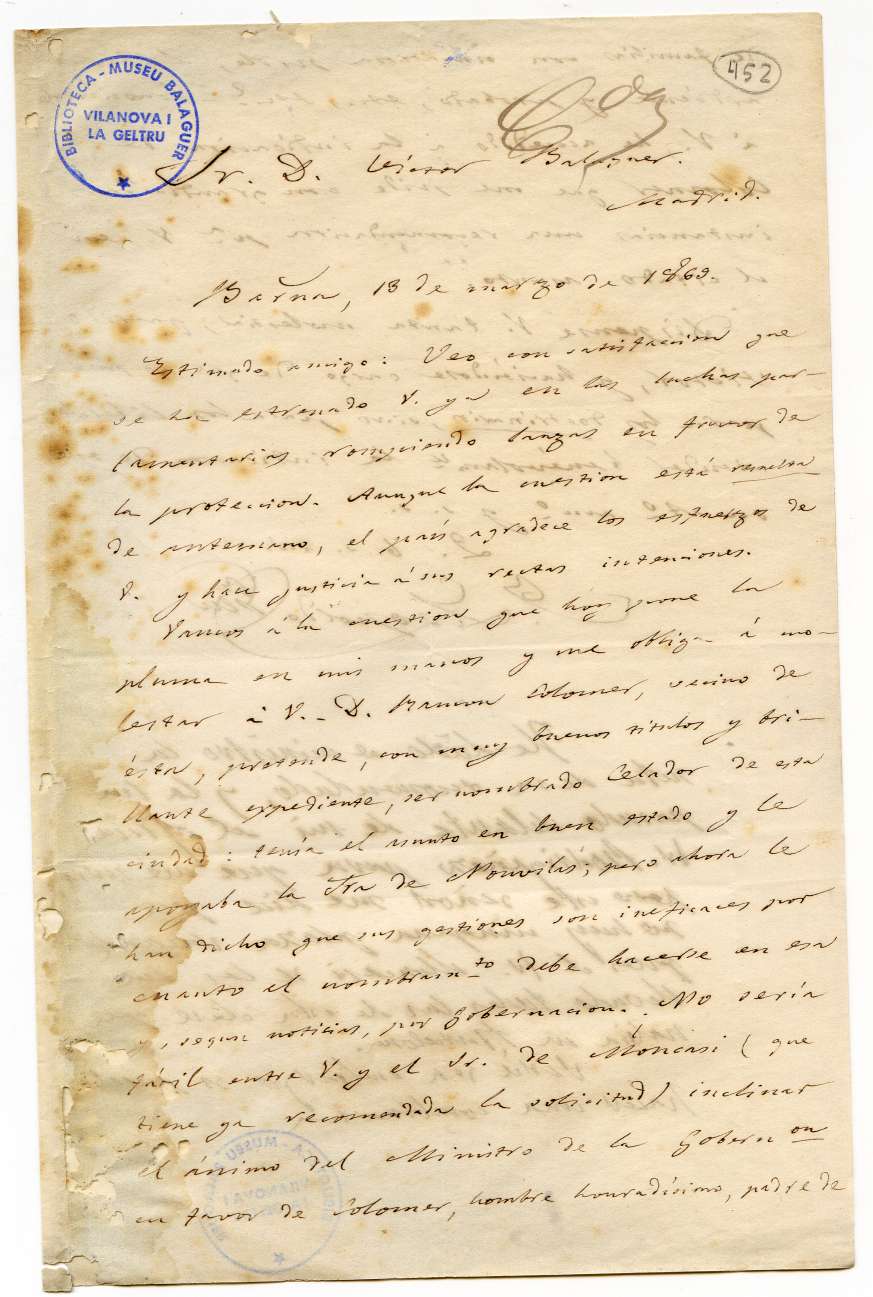 452
BIBLIOTECA - MUSEU BALAGUER
VILANOVA I
LA GELTRU
Cda
Sr. D. Victor Balaguer.
Madrid.
Barna, 13 de marzo de 1869.
Estimado amigo: Veo con satisfaccion que
se ha estrenado V. ya en las luchas par-
lamentarias rompiendo lanzas en favor de
la proteccion. Aunque la cuestion está resuelta
de antemano, el país agradece los esfuerzos de
V. y hace justicia á sus rectas intenciones.
Vamos á la cuestion que hoy pone la
pluma en mis manos y me obliga á mo-
lestar á V. - D. Ramon Colomer, vecino de
ésta, pretende, con muy buenos titulos y bri-
llante expediente, ser nombrado Celador de esta
ciudad: tenía el asunto en buen estado y le
apoyaba la Sra de Nouvilas; pero ahora le
han dicho que sus gestiones son ineficaces por
cuanto el nombramto debe hacerse en esa
y, segun noticias, por Gobernacion. No sería
fácil entre V. y el Sr. de Moncasi (que
tiene ya recomendada la solicitud) inclinar
el ánimo del Ministro de la Gobernon
en favor de Colomer, hombre honradísimo, padre de